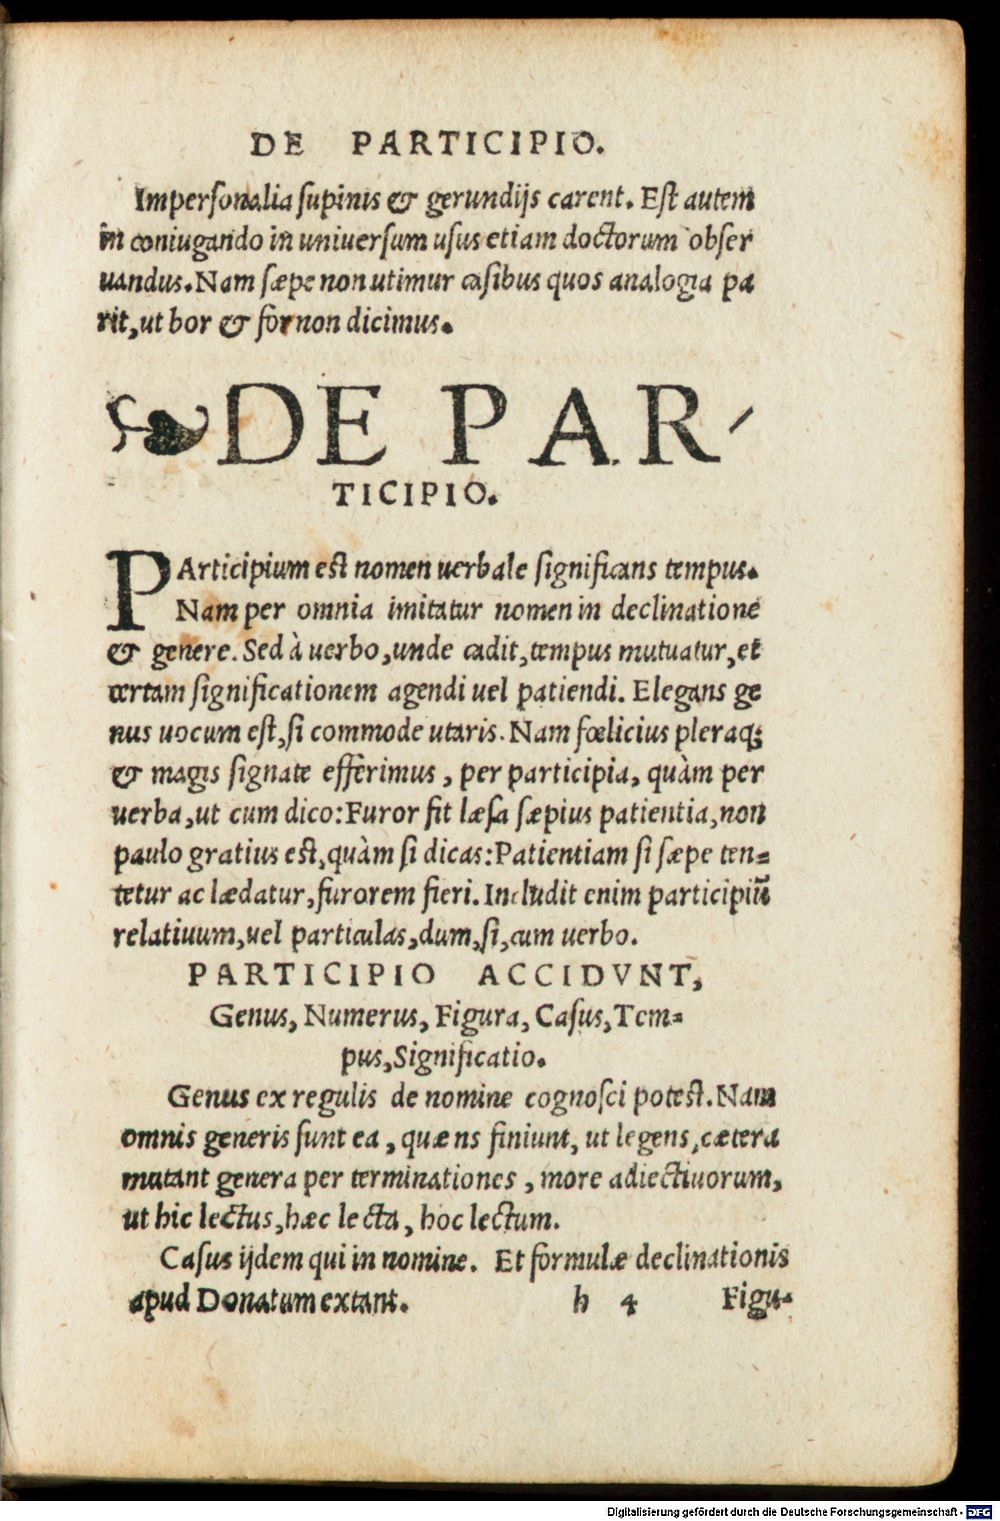 DE PARTICIPIO.
Impersonalia supinis & gerundijs carent. Est autem
in coniugando in uniuersum usus etiam doctorum obser
uandus. Nam sæpe non utimur casibus quos analogia pa
rit, ut hor & for non dicimus.
DE PAR-
TICIPIO.
PArticipium est nomen uerbale significans tempus.
Nam per omnia imitatur nomen in declinatione
& genere. Sed à uerbo, unde cadit, tempus mutuatur, et
certam significationem agendi uel patiendi. Elegans ge
nus uocum est, si commode utaris. Nam fœlicius pleraq;
& magis signate efferimus, per participia, quàm per
uerba, ut cum dico: Furor fit læsa sæpius patientia, non
paulo gratius est, quàm si dicas: Patientiam si sæpe ten=
tetur ac lædatur, furorem fieri. Includit enim participiũ
relatiuum, uel particulas, dum, si, cum uerbo.
PARTICIPIO ACCIDVNT,
Genus, Numerus, Figura, Casus, Tem=
pus, Significatio.
Genus ex regulis de nomine cognosci potest. Nam
omnis generis sunt ea, quæ ns finiunt, ut legens, cætera
mutant genera per terminationes, more adiectiuorum,
ut hic lectus, hæc lecta, hoc lectum.
Casus ijdem qui in nomine. Et formulæ declinationis
apud Donatum extant. h 4 Figu-
Digitalisierung gefördert durch die Deutsche Forschungsgemeinschaft - DFG